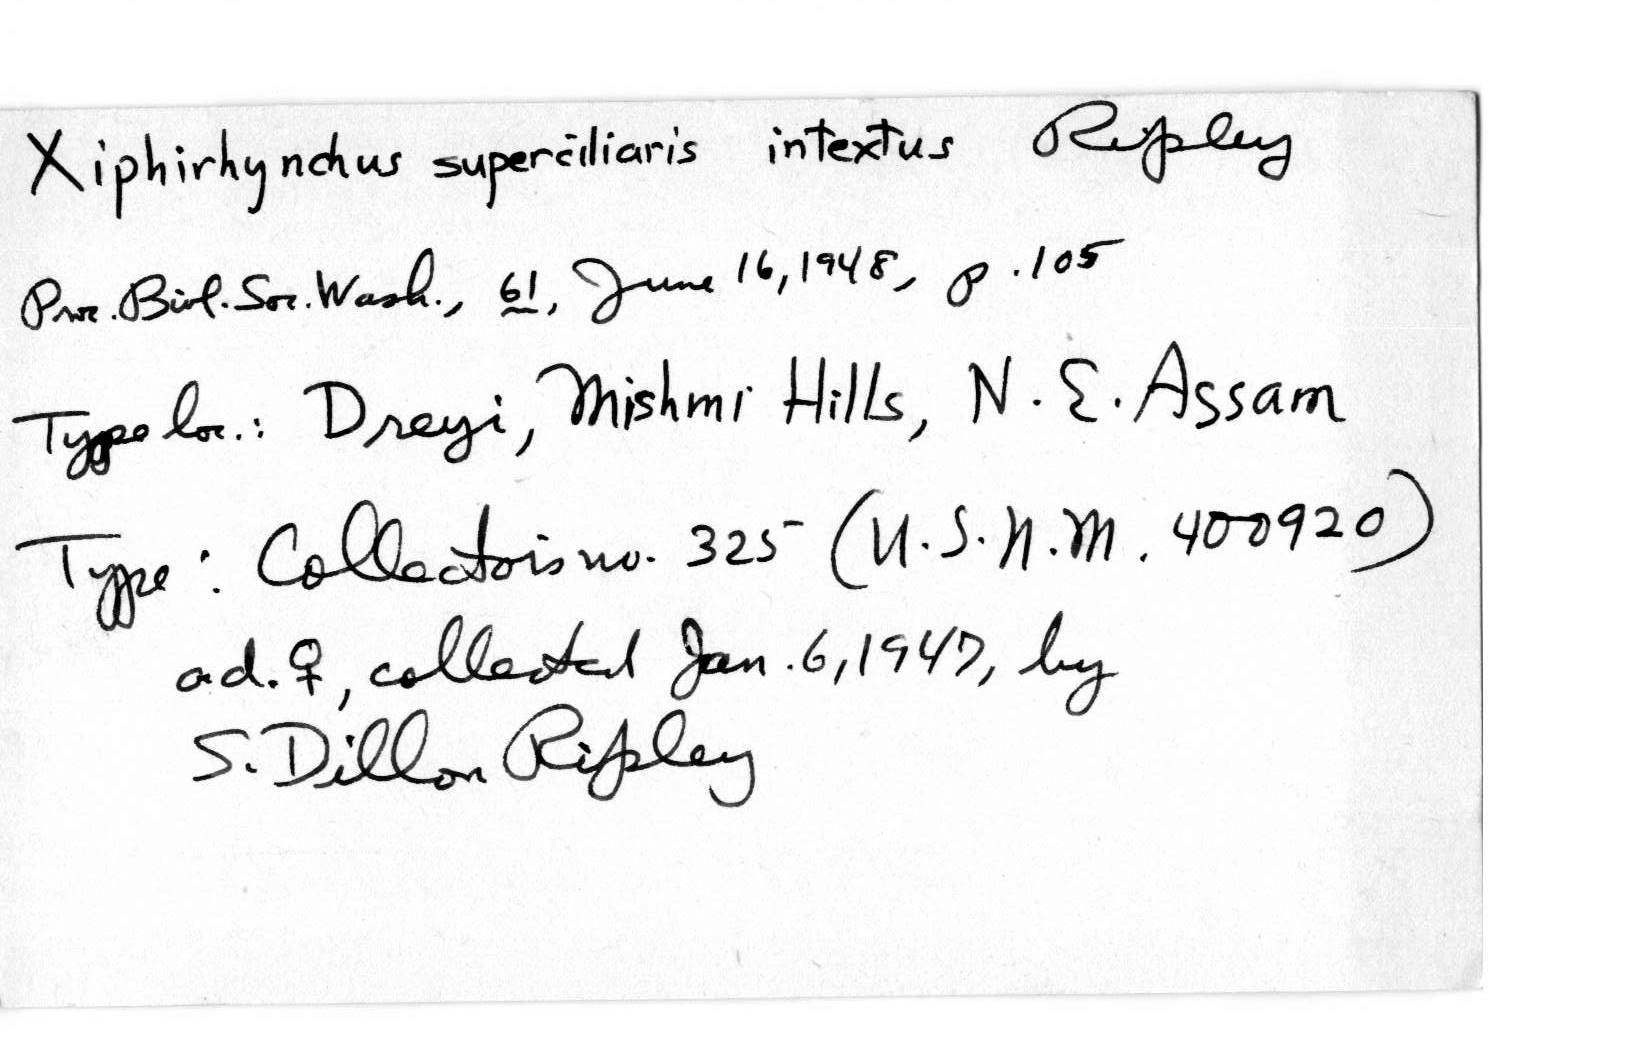 Xiphirhynchus superciliaris intextus Ripley
Proc. Biol. Soc. Wash., 61, June 16, 1948, p. 105
Type loc.: Dreyi, Mishmi Hills, N. E. Assam
Type: Collector's no. 325 (U.S.N.M. 400920)
ad. ♀, collected Jan. 6, 1947, by
S. Dillon Ripley